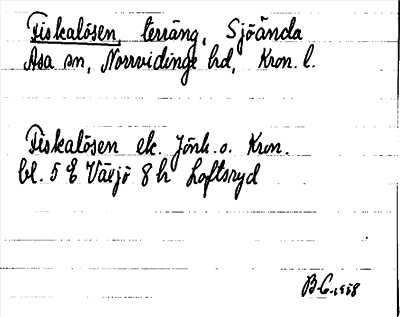 Fiskalösen, terräng, Sjöända
Asa sn, Norrvidinge hd, Kron. l.
Fiskalösen ek. Jönk. o. Kron.
bl. 5 E Växjö 8 h Loftsryd
B-G. 1958